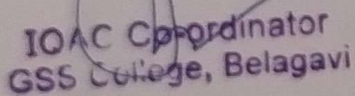 IQAC Coordinator
GSS College, Belagavi